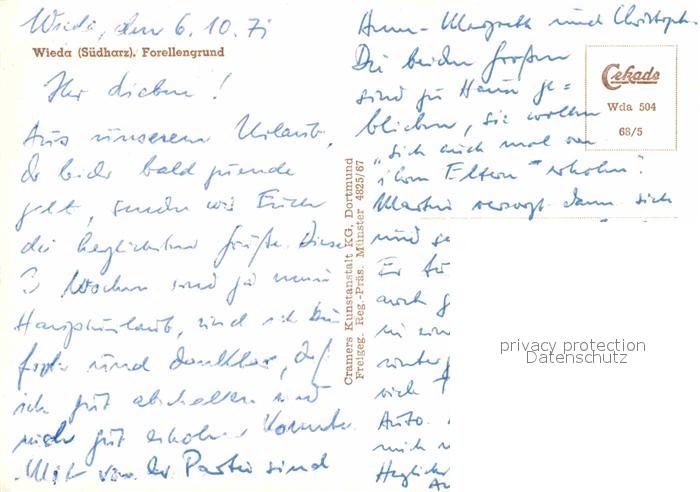 Wieda, den 6.10.71
Wieda (Südharz). Forellengrund
Ihr Lieben!
Aus unserem Urlaub,
der leider bald zuende
geht, senden wir Euch
die herzlichsten Grüße. Diese
3 Wochen sind ja mein
Haupturlaub, und ich bin
froh und dankbar, daß
ich gut abschalten und
mich gut erholen konnte.
Mit von der Partie sind
Cramers Kunstanstalt KG, Dortmund
Freigeg. Reg.-Präs. Münster 4825/67
Ann-Margreth und Christoph.
Die beiden großen
sind zu Haus ge=
blieben, sie wollen
"sich auch mal von
ihren Eltern erholen".
Martin versorgt dann sich
und
Er
auch
Auto.
mich
Herzliche
Cekade
Wda 504
68/5
privacy protection
Datenschutz